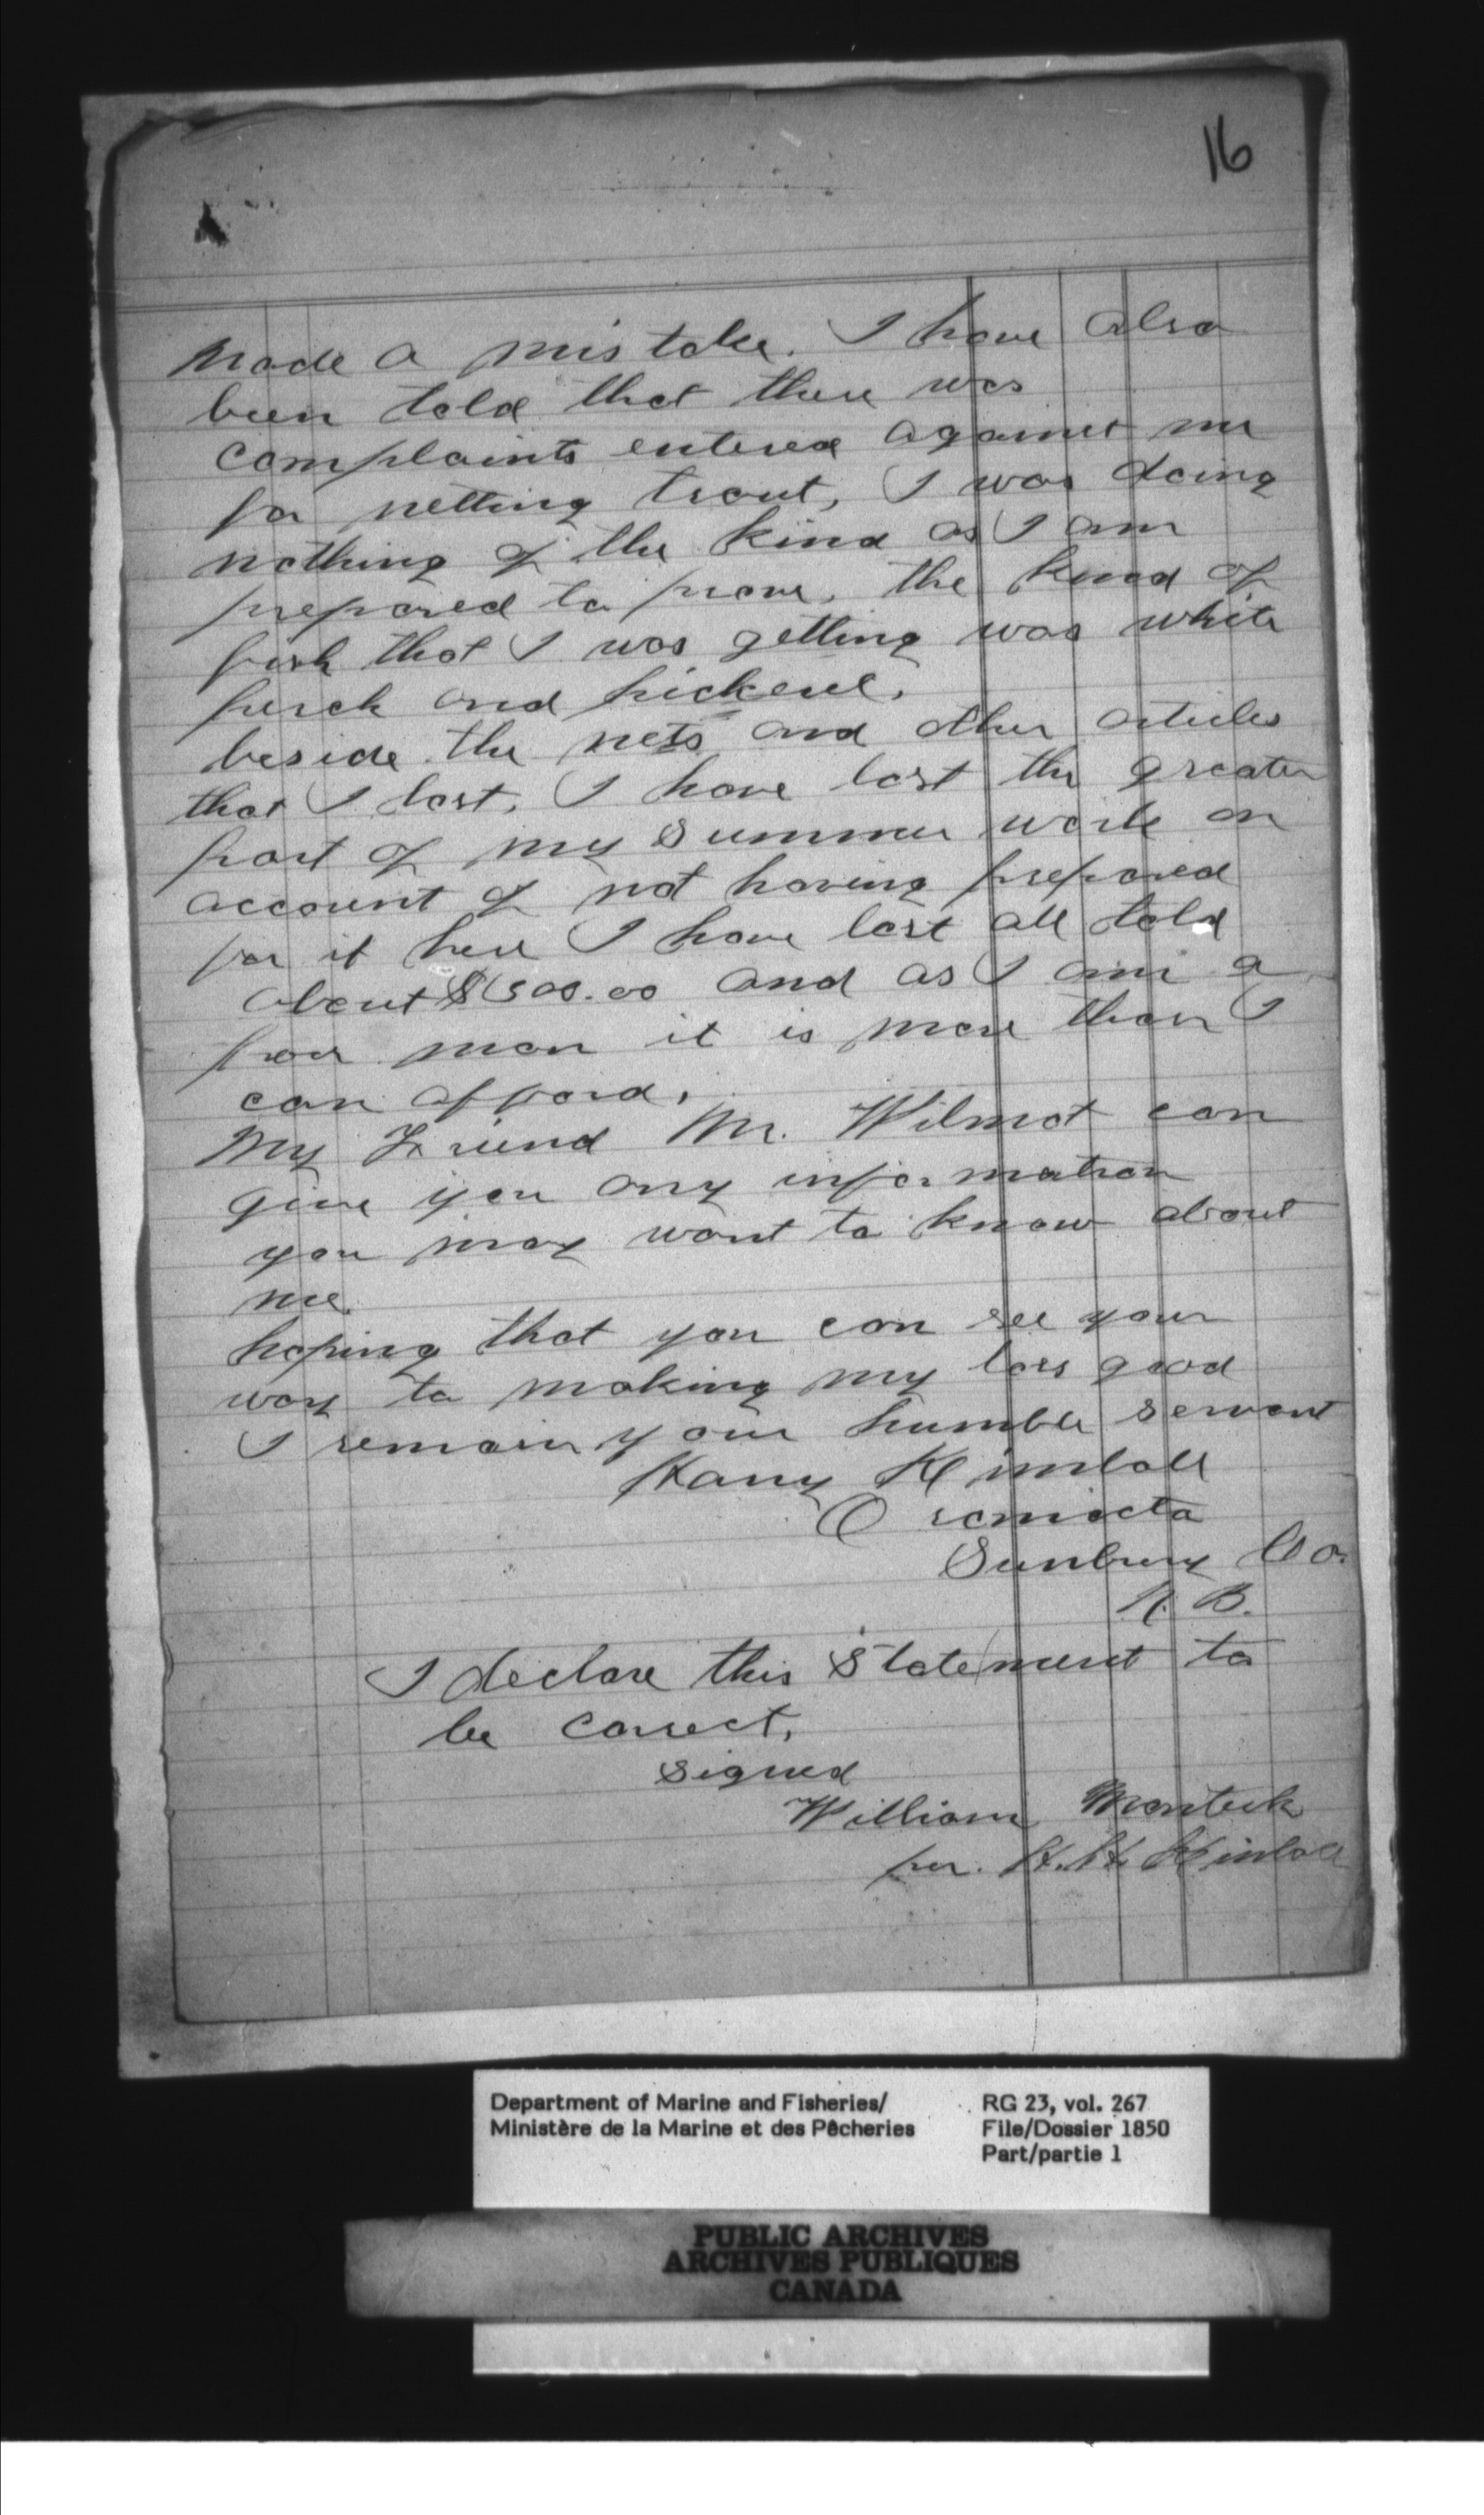 16
Made a mistake. I have also
been told that there was
complaints entered against me
for netting trout, I was doing
nothing of the kind as I am
prepared to prove, the kind of
fish that I was getting was white
perch and pickerel.
beside the nets and other articles
that I lost, I have lost the greater
part of my Summer work on
account of not having prepared
for it here I have lost all told
about $500.00 and as I am a
poor man it is more than I
can afford.
My Friend Mr. Wilmot can
give you any information
you may want to know about
me.
hoping that you can see your
way to making my loss good
I remain your humble servant
Harry Kimball
Oromocto
Sunbury Co.
N. B.
I declare this Statement to
be correct,
signed
William
per. H. H. Kimball
Department of Marine and Fisheries/
Ministère de la Marine et des Pêcheries
RG 23, vol. 267
File/Dossier 1850
Part/partie 1
PUBLIC ARCHIVES
ARCHIVES PUBLIQUES
CANADA